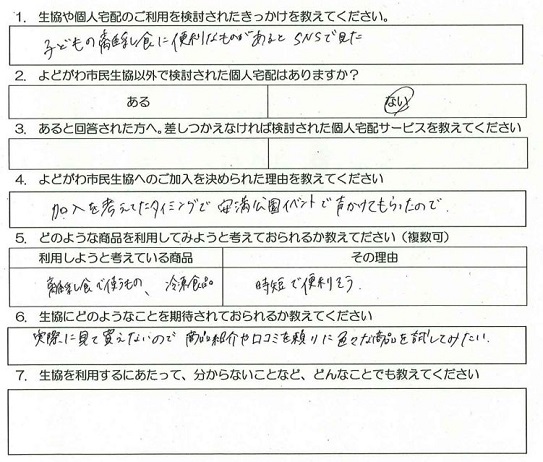 1. 生協や個人宅配のご利用を検討されたきっかけを教えてください。
子どもの離乳食に便利なものがあると SNSで見た
2. よどがわ市民生協以外で検討された個人宅配はありますか?
ある ない
3. あると回答された方へ。差しつかえなければ検討された個人宅配サービスを教えてください
4. よどがわ市民生協へのご加入を決められた理由を教えてください
加入を考えてたタイミングで 安満公園イベントで声かけてもらったので.
5. どのような商品を利用してみようと考えておられるか教えてださい(複数可)
利用しようと考えている商品 その理由
離乳食で使うもの、冷凍食品 時短で便利そう.
6. 生協にどのようなことを期待されておられるか教えてください
実際に見て買えないので 商品紹介や口コミを頼りに色々な商品を試してみたい.
7. 生協を利用するにあたって、分からないことなど、どんなことでも教えてください